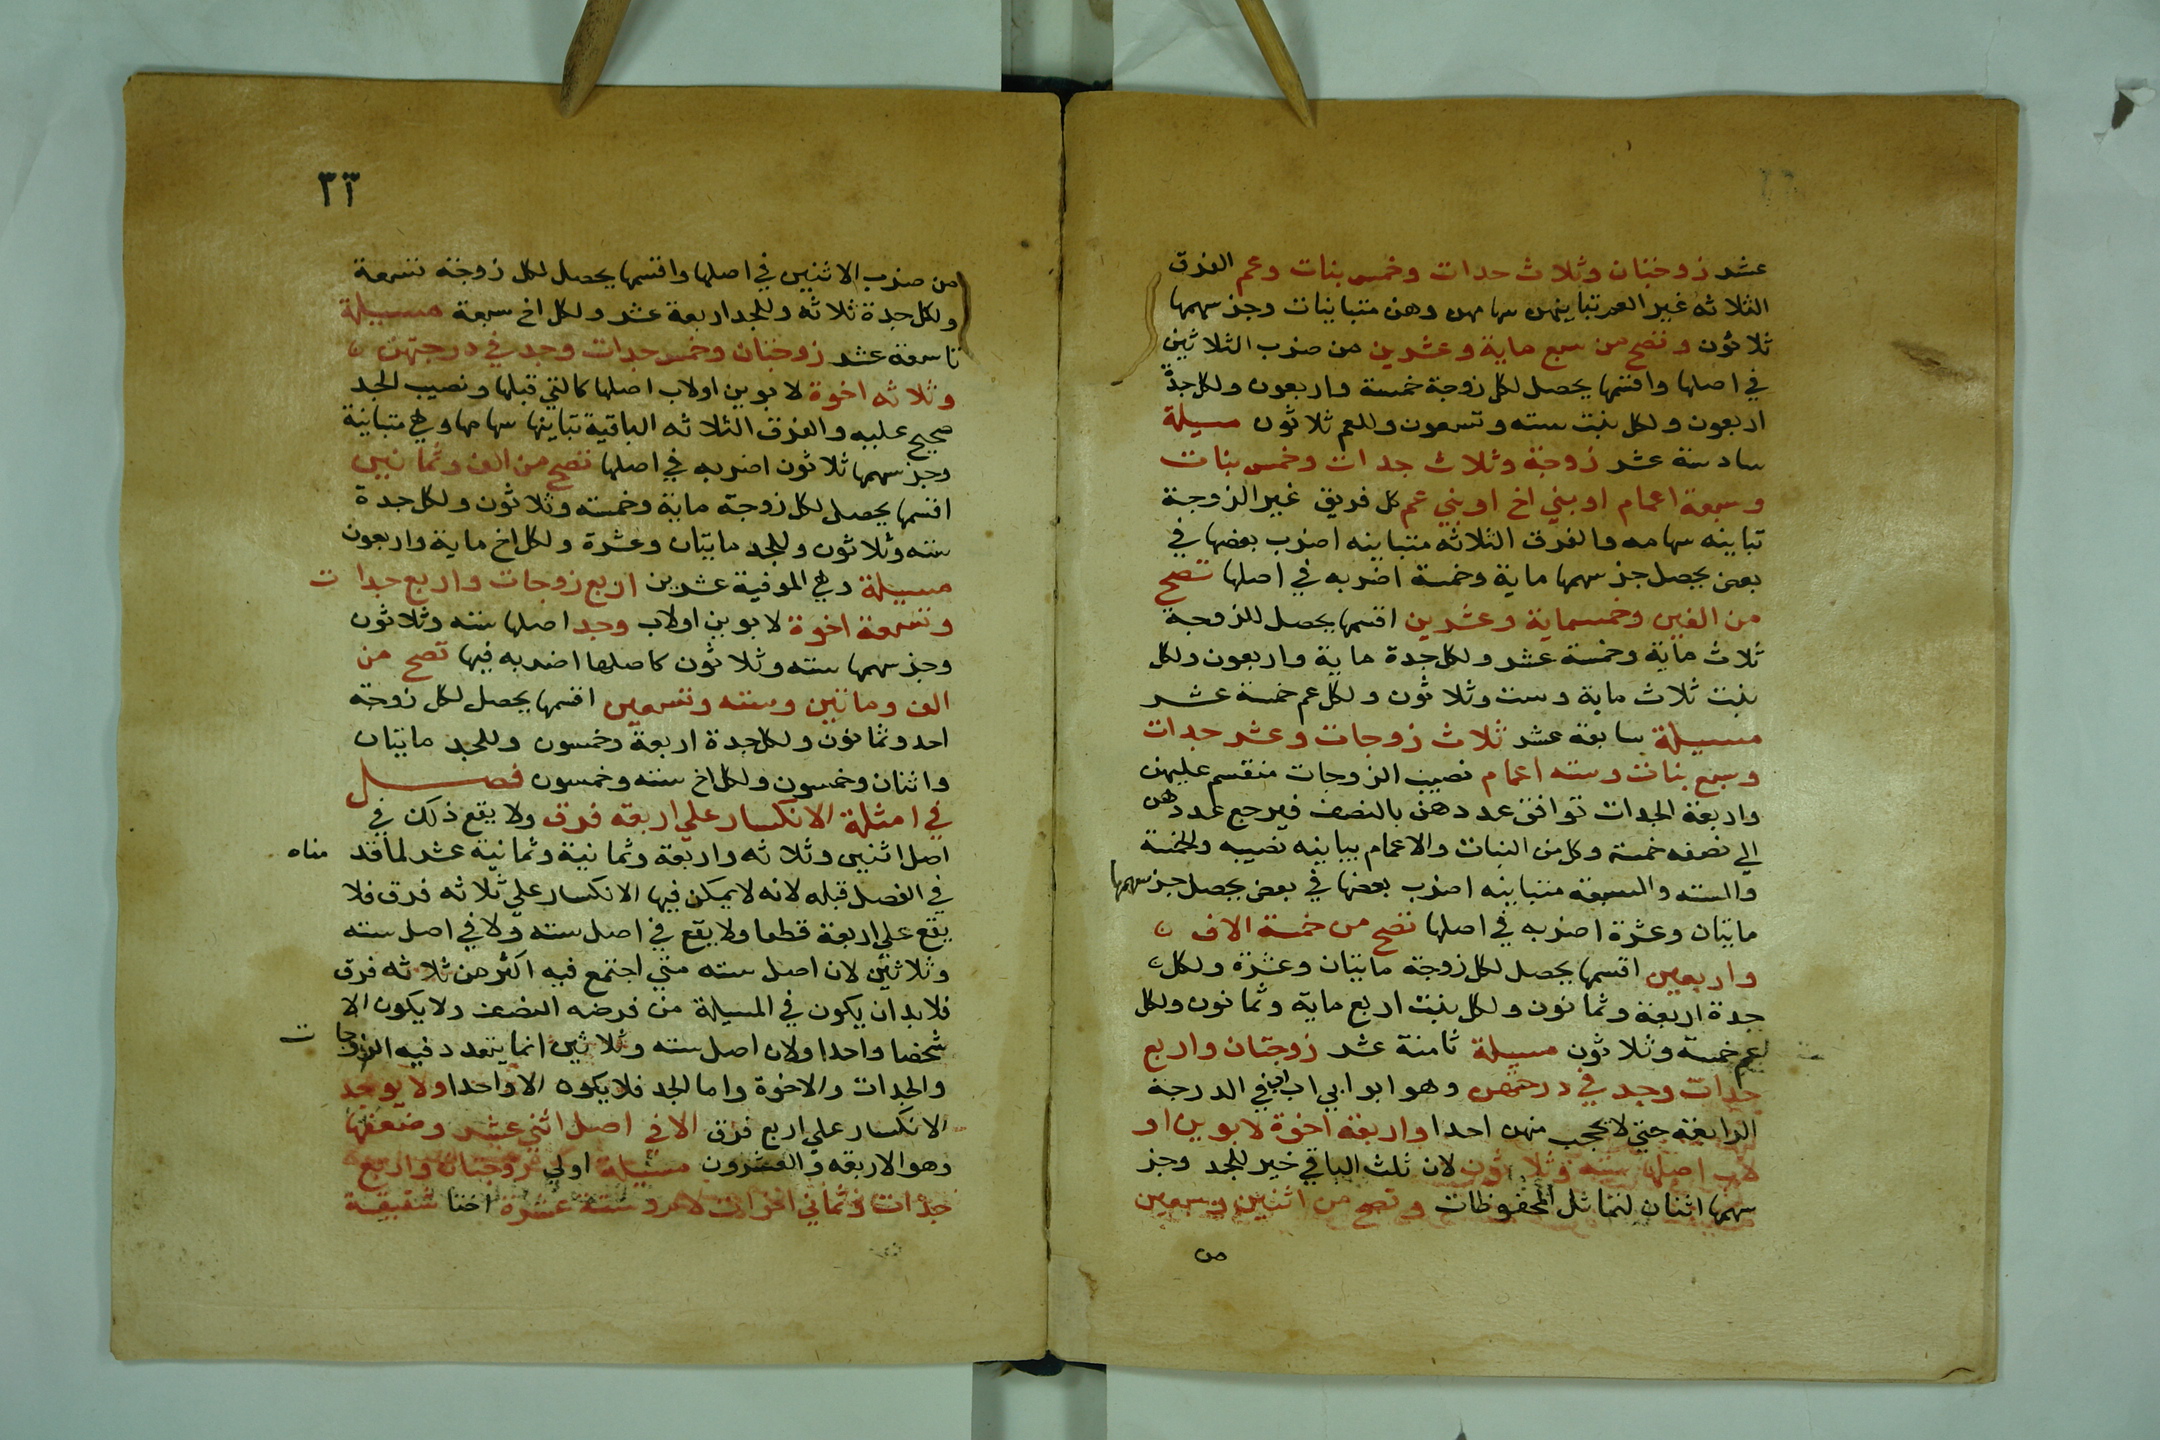 عشر زوجتان وثلاث جدات وخمس بنات وعم الفرق
الثلاثه غير العم تباينهن سهامهن وهن متباينات وجز سهمها
ثلاثون وتصح من سبع ماية وعشرين من ضرب الثلاثين
في اصلها واقسمها يحصل لكل زوجة خمسة واربعون ولكل جدة
اربعون ولكل بنت سته وتسعون وللعم ثلاثون مسيلة
سادسة عشر زوجة وثلاث جدات وخمس بنات
وسبعة اعمام او بني اخ او بني عم كل فريق غير الزوجة
تباينه سهامه والفرق الثلاثه متباينه اضرب بعضها في
بعض يحصل جز سهمها ماية وخمسة اضربه في اصلها تصح
من الفين وخمسماية وعشرين اقسمها يحصل للزوجة
ثلاث ماية وخمسة عشر ولكل جدة ماية واربعون ولكل
بنت ثلاث ماية وست وثلاثون ولكل عم خمسة عشر
مسيلة سابعة عشر ثلاث زوجات وعشر جدات
وسبع بنات وسته اعمام نصيب الزوجات منقسم عليهن
واربعة الجدات توافق عددهن بالنصف فيرجع عددهن
الي نصفه خمسة وكل من البنات والاعمام يباينه نصيبه والخمسة
والسته والسبعة متباينه اضرب بعضها في بعض يحصل جز سهمها
مايتان وعشرة اضربه في اصلها تصح من خمسة الاف
واربعين اقسمها يحصل لكل زوجة مايتان وعشرة ولكل
جدة اربعة وثمانون ولكل بنت اربع ماية وثمانون ولكل
عم خمسة وثلاثون مسيلة ثامنة عشر زوجتان واربع
جدات وجد في درجتهن وهو ابو ابي اب في الدرجة
الرابعة حتي لا يحجب منهن احدا واربعة اخوة لابوين او
لاب اصلها سته وثلاثون لان ثلث الباقي خير للجد وجز
سهمها اثنان لتماثل المحفوظات وتصح من اثنين وسبعين
من
٣٣
من ضرب الاثنين في اصلها واقسمها يحصل لكل زوجة تسعة
ولكل جدة ثلاثه وللجد اربعة عشر ولكل اخ سبعة مسيلة
تاسعة عشر زوجتان وخمس جدات وجد في درجتهن
وثلاثه اخوة لابوين اولاب اصلها كالتي قبلها ونصيب الجد
صحيح عليه والفرق الثلاثه الباقية تباينها سهامها وهي متباينة
وجز سهمها ثلاثون اضربه في اصلها تصح من الف وثمانين
اقسمها يحصل لكل زوجة ماية وخمسة وثلاثون ولكل جدة
سته وثلاثون وللجد مايتان وعشرة ولكل اخ ماية واربعون
مسيلة وهي الموفية عشرين اربع زوجات واربع جدات
وتسعة اخوة لابوين اولاب وجد اصلها سته وثلاثون
وجز سهمها سته وثلاثون كاصلها اضربه فيها تصح من
الف ومائتين وسته وتسعين اقسمها يحصل لكل زوجة
احد وثمانون ولكل جدة اربعة وخمسون وللجد مايتان
واثنان وخمسون ولكل اخ سته وخمسون فصل
في امثلة الانكسار علي اربعة فرق ولا يقع ذلك في
اصل اثنين وثلاثه واربعة وثمانية وثمانية عشر لما قدمناه
في الفصل قبله لانه لا يمكن فيها الانكسار علي ثلاثه فرق فلا
يقع علي اربعة قطعا ولا يقع في اصل سته ولا في اصل سته
وثلاثين لان اصل سته متي اجتمع فيه اكثر من ثلاثه فرق
فلا بد ان يكون في المسيلة من فرضه النصف ولا يكون الا
شخصا واحدا ولان اصل سته وثلاثين انما يتعدد فيه الزوجات
والجدات والاخوة واما الجد فلا يكون الا واحدا ولا يوجد
الانكسار علي اربع فرق الا في اصل اثني عشر وضعفها
وهو الاربعه والعشرون مسيلة اولي زوجتان واربع
جدات وثماني اخوات لام وستة عشرة اختا شقيقة